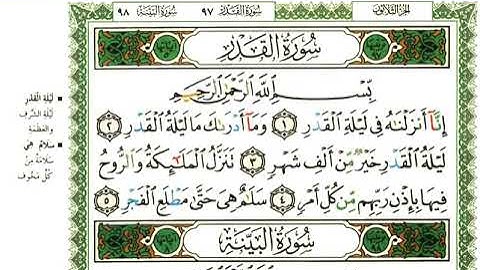 سُورَةُ القَدْرِ ٩٧ سُورَةُ البَيِّنَةِ ٩٨
الجزء الثلاثون
سُورَةُ القَدْرِ
بِسْمِ ٱللَّهِ ٱلرَّحْمَٰنِ ٱلرَّحِيمِ
إِنَّآ أَنزَلْنَٰهُ فِى لَيْلَةِ ٱلْقَدْرِ ١ وَمَآ أَدْرَىٰكَ مَا لَيْلَةُ ٱلْقَدْرِ ٢
لَيْلَةُ ٱلْقَدْرِ خَيْرٌ مِّنْ أَلْفِ شَهْرٍ ٣ تَنَزَّلُ ٱلْمَلَٰٓئِكَةُ وَٱلرُّوحُ
فِيهَا بِإِذْنِ رَبِّهِم مِّن كُلِّ أَمْرٍ ٤ سَلَٰمٌ هِىَ حَتَّىٰ مَطْلَعِ ٱلْفَجْرِ ٥
سُورَةُ البَيِّنَةِ
▪ لَيْلَةِ الْقَدْرِ
لَيْلَةِ الشَّرَفِ
وَالْعَظَمَةِ
▪ سَلَامٌ هِيَ
سَلَامَةٌ مِنْ
كُلِّ مَخُوفٍ